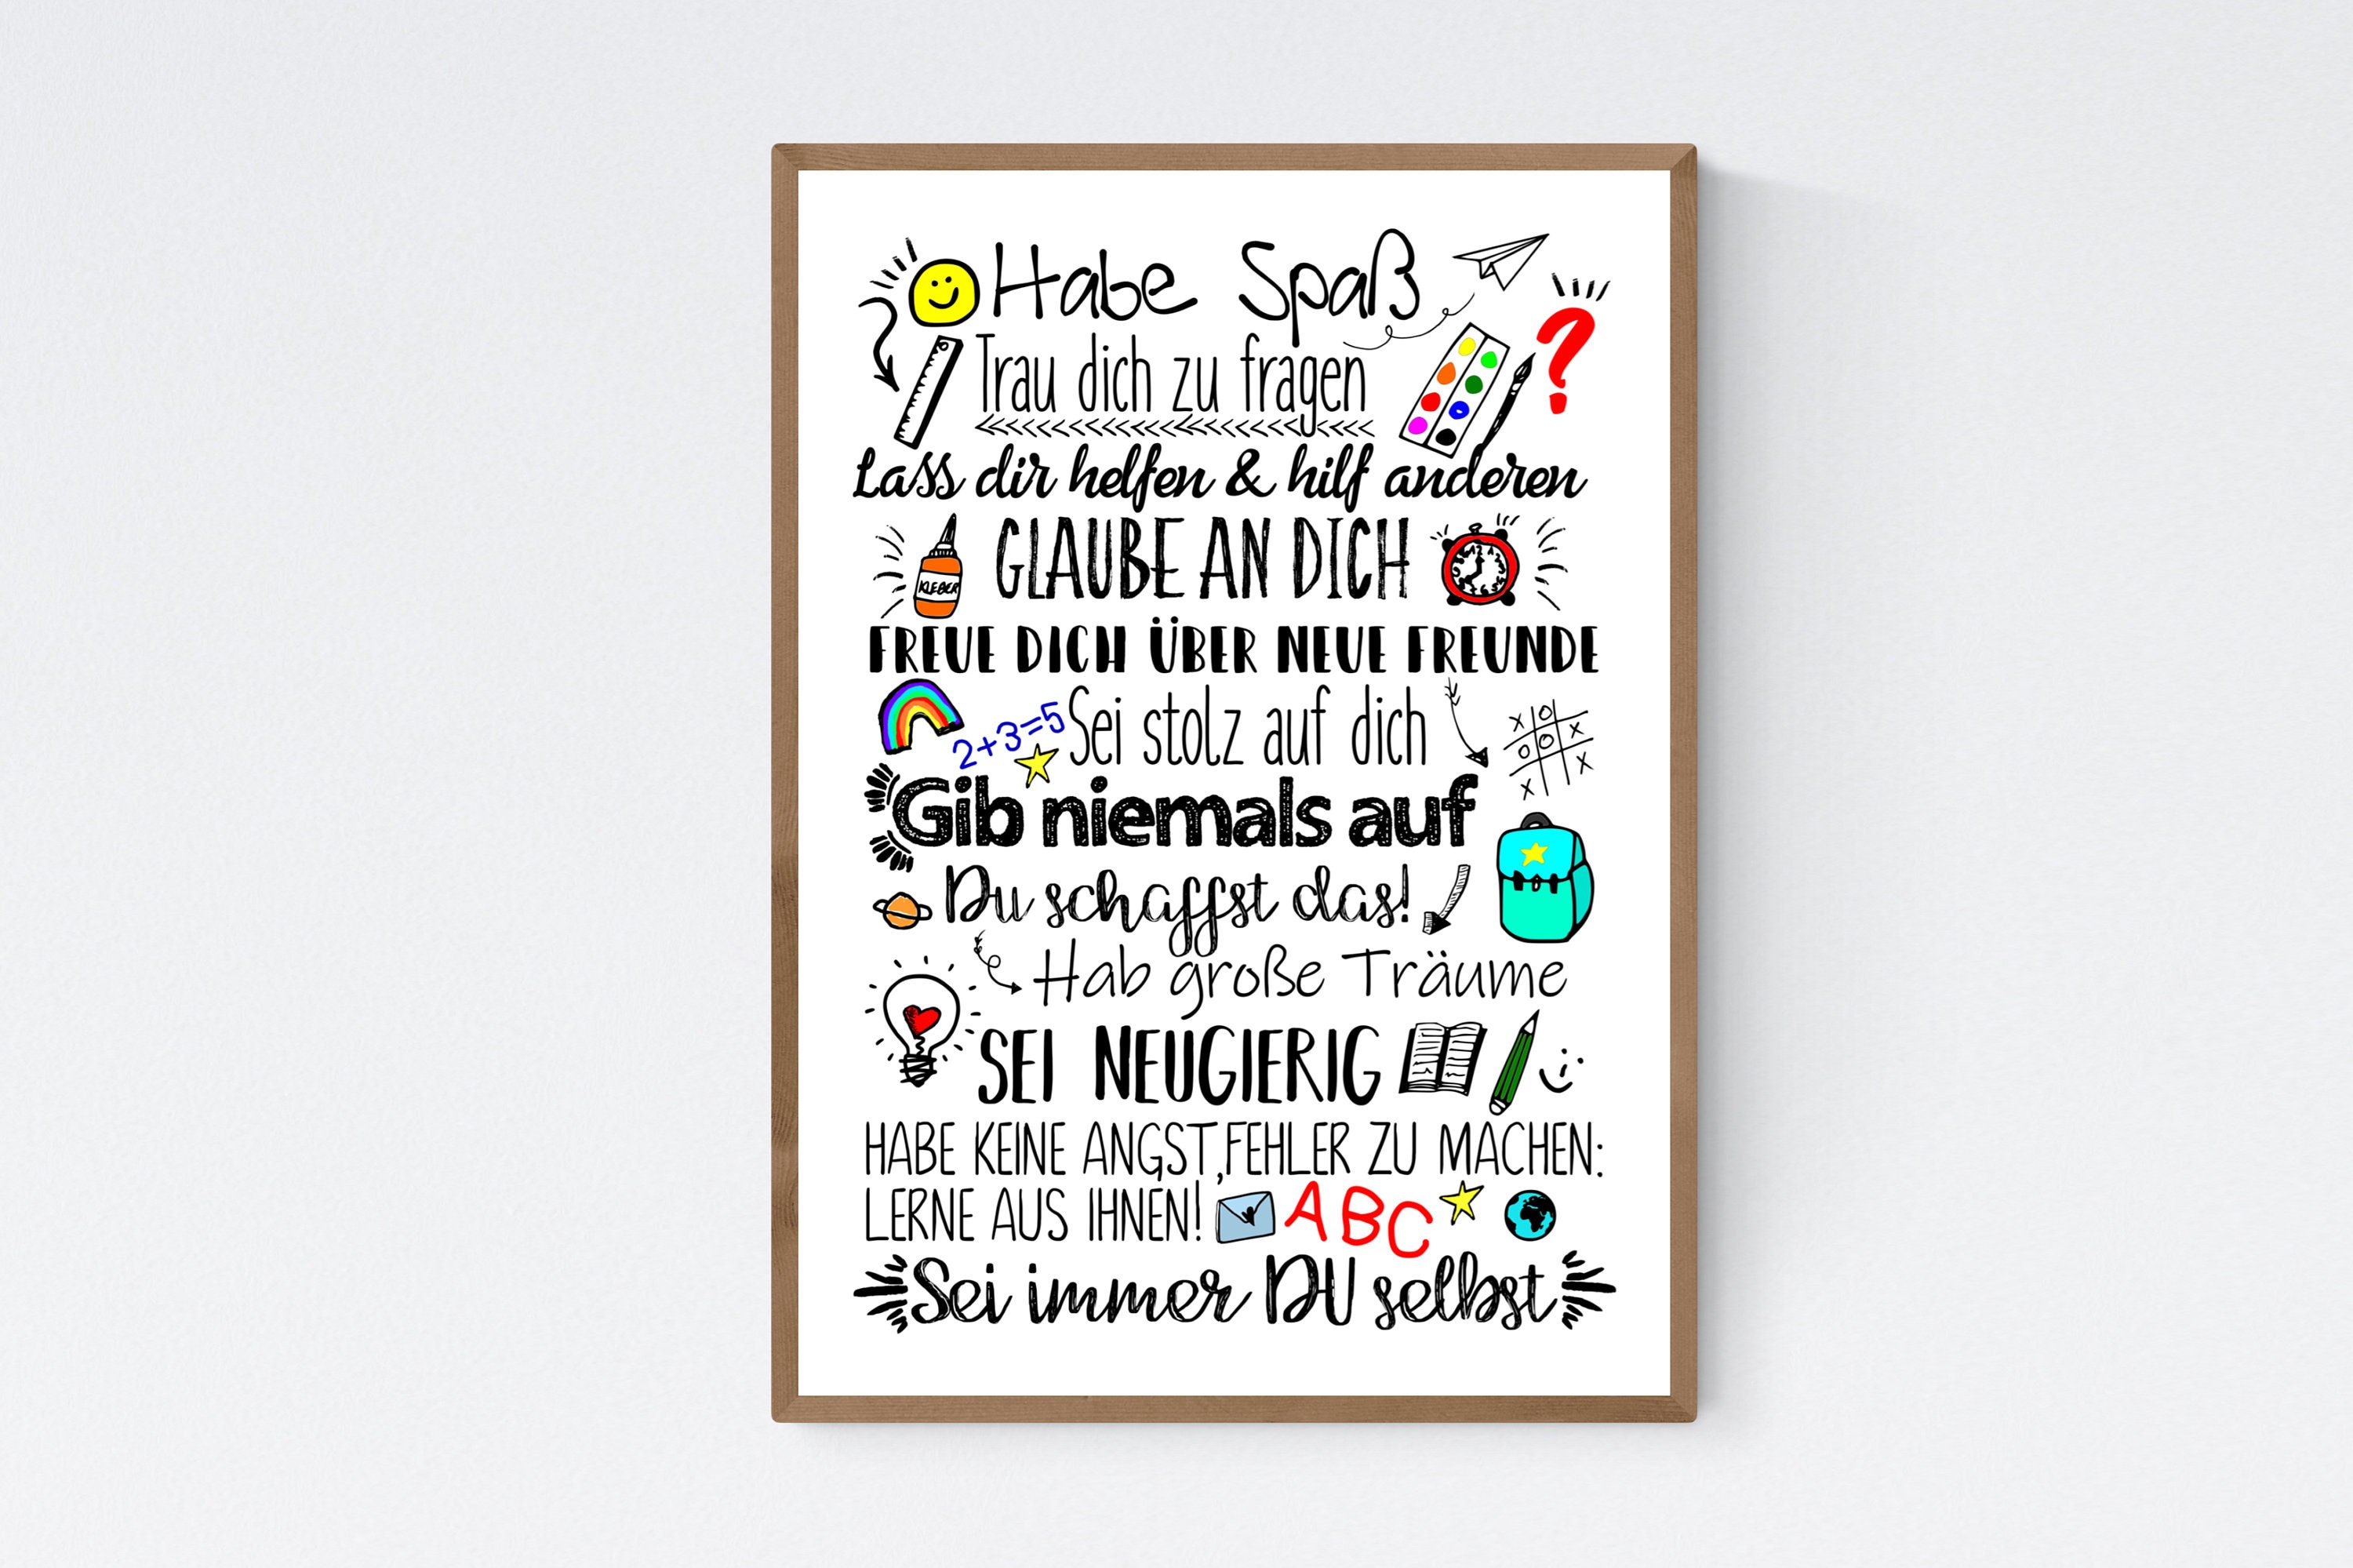 Habe Spaß
?
Trau dich zu fragen
Lass dir helfen & hilf anderen
KLEBER
GLAUBE AN DICH
FREUE DICH ÜBER NEUE FREUNDE
2+3=5
Sei stolz auf dich
X O
O O X
X X
Gib niemals auf
Du schaffst das!
Hab große Träume
SEI NEUGIERIG
HABE KEINE ANGST,FEHLER ZU MACHEN:
LERNE AUS IHNEN!
ABC
Sei immer DU selbst